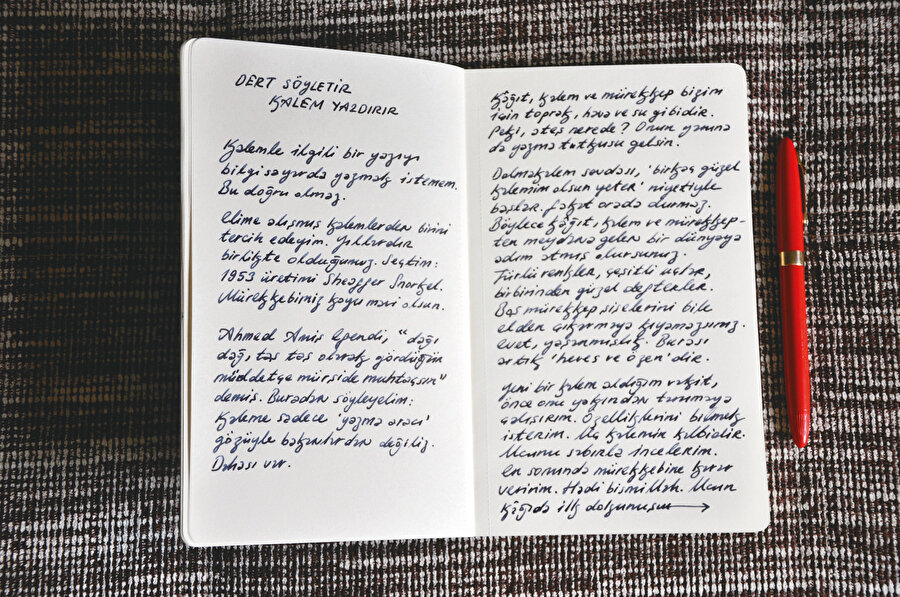 DERT SÖYLETİR
KALEM YAZDIRIR
Kalemle ilgili bir yazıyı
bilgisayarda yazmak istemem.
Bu doğru olmaz.
Elime alışmış kalemlerden birini
tercih edeyim. Yıllardır
birlikte olduğumuz. Seçtim:
1953 üretimi Sheaffer Snorkel.
Mürekkebimiz koyu mavi olsun.
Ahmed Amiş Efendi, "dağı
dağ, taşı taş olarak gördüğün
müddetçe mürşide muhtaçsın"
demiş. Buradan söyleyelim:
Kaleme sadece 'yazma aracı'
gözüyle bakanlardan değiliz.
Dahası var.
Kâğıt, kalem ve mürekkep bizim
için toprak, hava ve su gibidir.
Peki, ateş nerede? Onun yanına
da yazma tutkusu gelsin.
Dolmakalem sevdası, 'birkaç güzel
kalemim olsun yeter' niyetiyle
başlar. Fakat orada durmaz.
Böylece kâğıt, kalem ve mürekkep-
ten meydana gelen bir dünyaya
adım atmış olursunuz.
Türlü renkler, çeşitli uçlar,
birbirinden güzel defterler.
Boş mürekkep şişelerini bile
elden çıkarmaya kıyamazsınız.
Evet, yaşanmışlık. Burası
artık 'heves ve özen'dir.
Yeni bir kalem aldığım vakit,
önce onu yakından tanımaya
çalışırım. Özelliklerini bilmek
isterim. Uç kalemin kalbidir.
Ucunu sabırla incelerim.
En sonunda mürekkebine karar
veririm. Hadi bismillah. Ucun
kâğıda ilk dokunuşu →